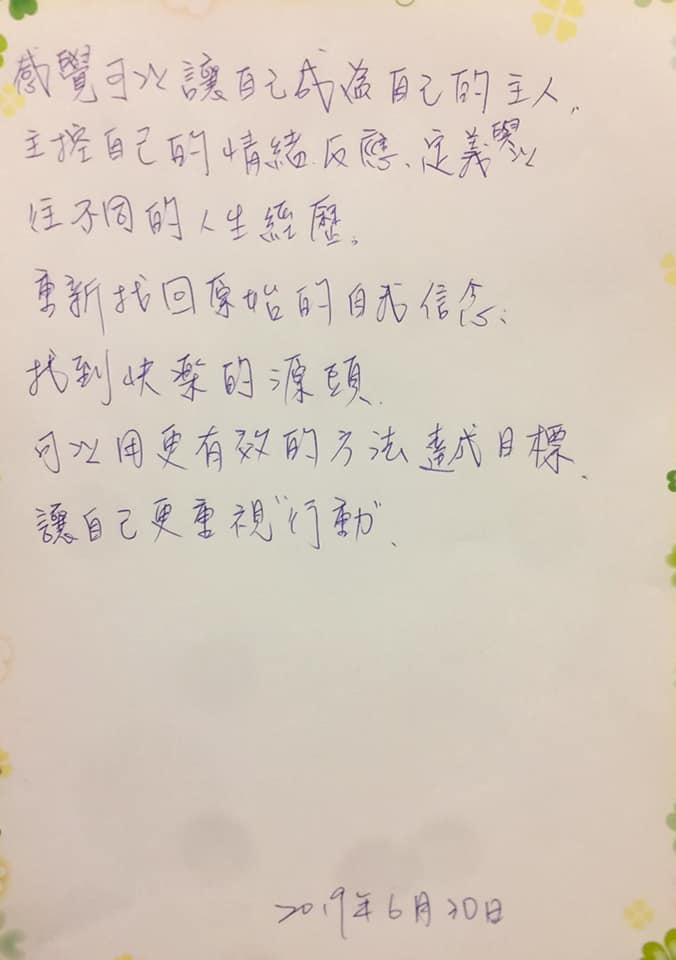 感覺可以讓自己成為自己的主人,
主控自己的情緒.反應、定義與以
往不同的人生經歷、
重新找回原始的自我信念、
找到快樂的源頭、
可以用更有效的方法達成目標、
讓自己更重視"行動"、
2019年6月30日